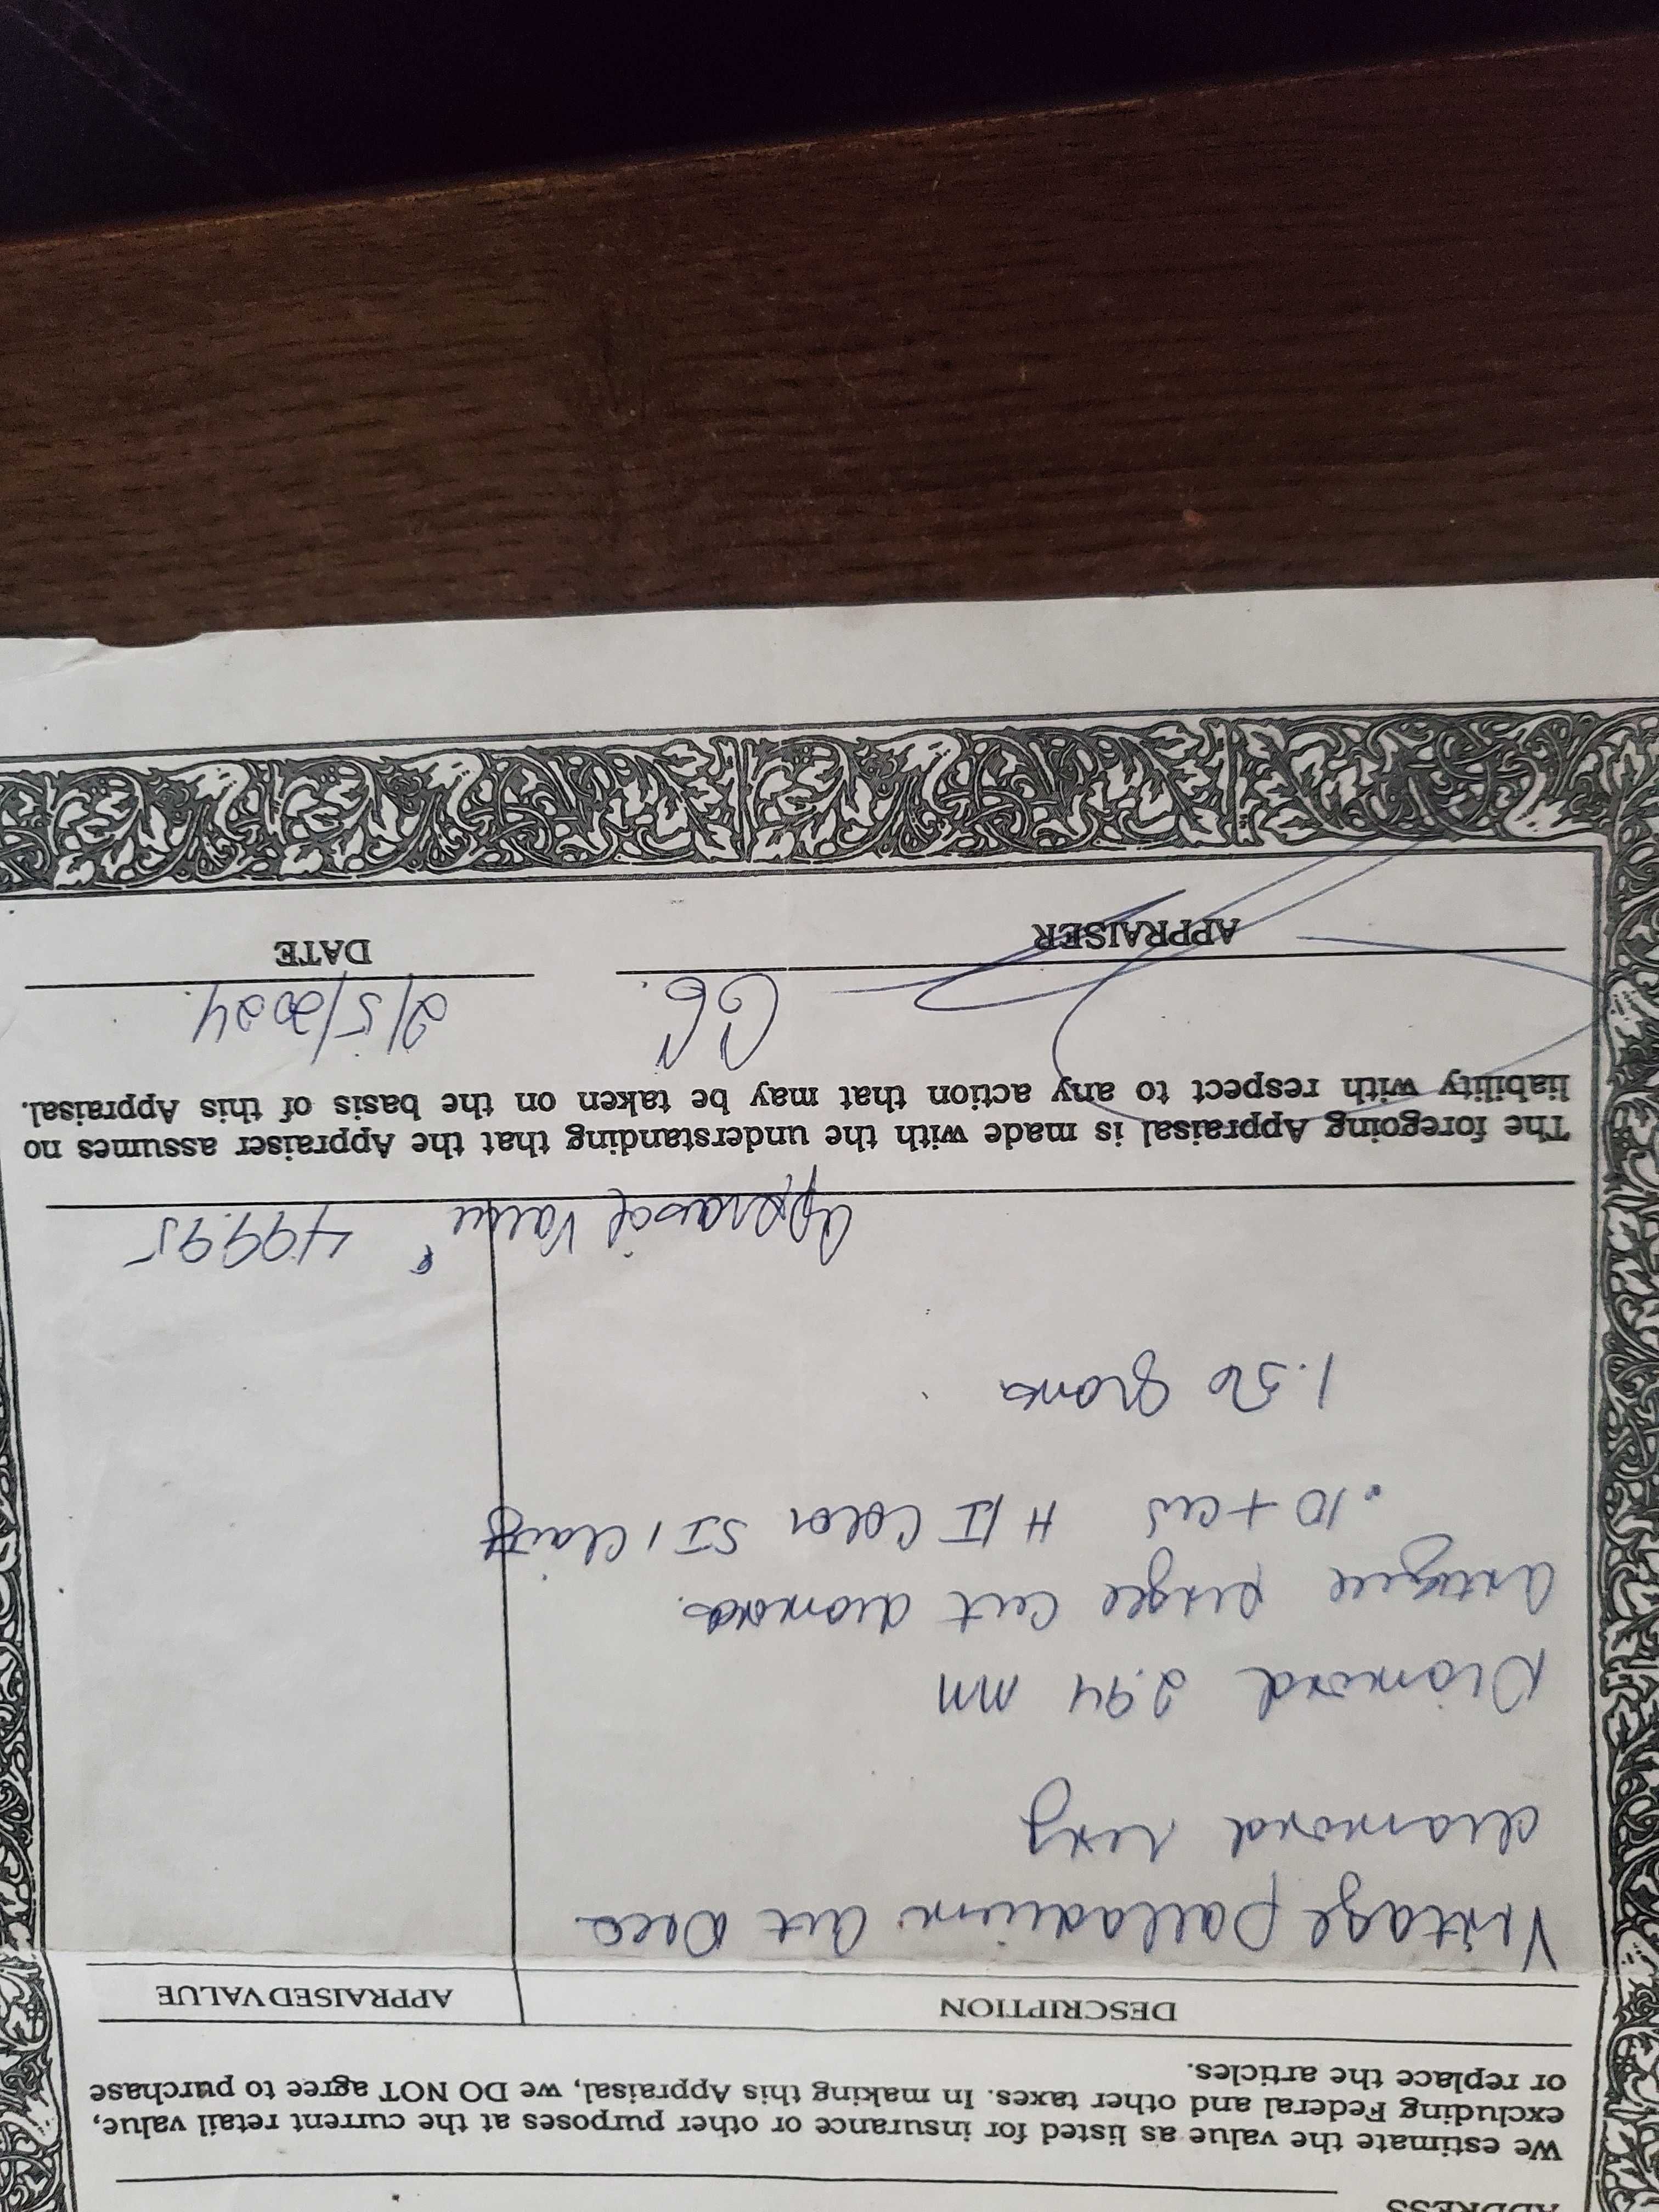 ADDRESS
We estimate the value as listed for insurance or other purposes at the current retail value,
excluding Federal and other taxes. In making this Appraisal, we DO NOT agree to purchase
or replace the articles.
DESCRIPTION APPRAISED VALUE
Vintage palladium Art Deco
diamond ring
Diamond 2.94 mm
antique single cut diamonds.
.10 + cts H/I Color SI 1 Clarity
1.50 grams
Appraisal Value 499.95
The foregoing Appraisal is made with the understanding that the Appraiser assumes no
liability with respect to any action that may be taken on the basis of this Appraisal.
2/5/2024
APPRAISER DATE